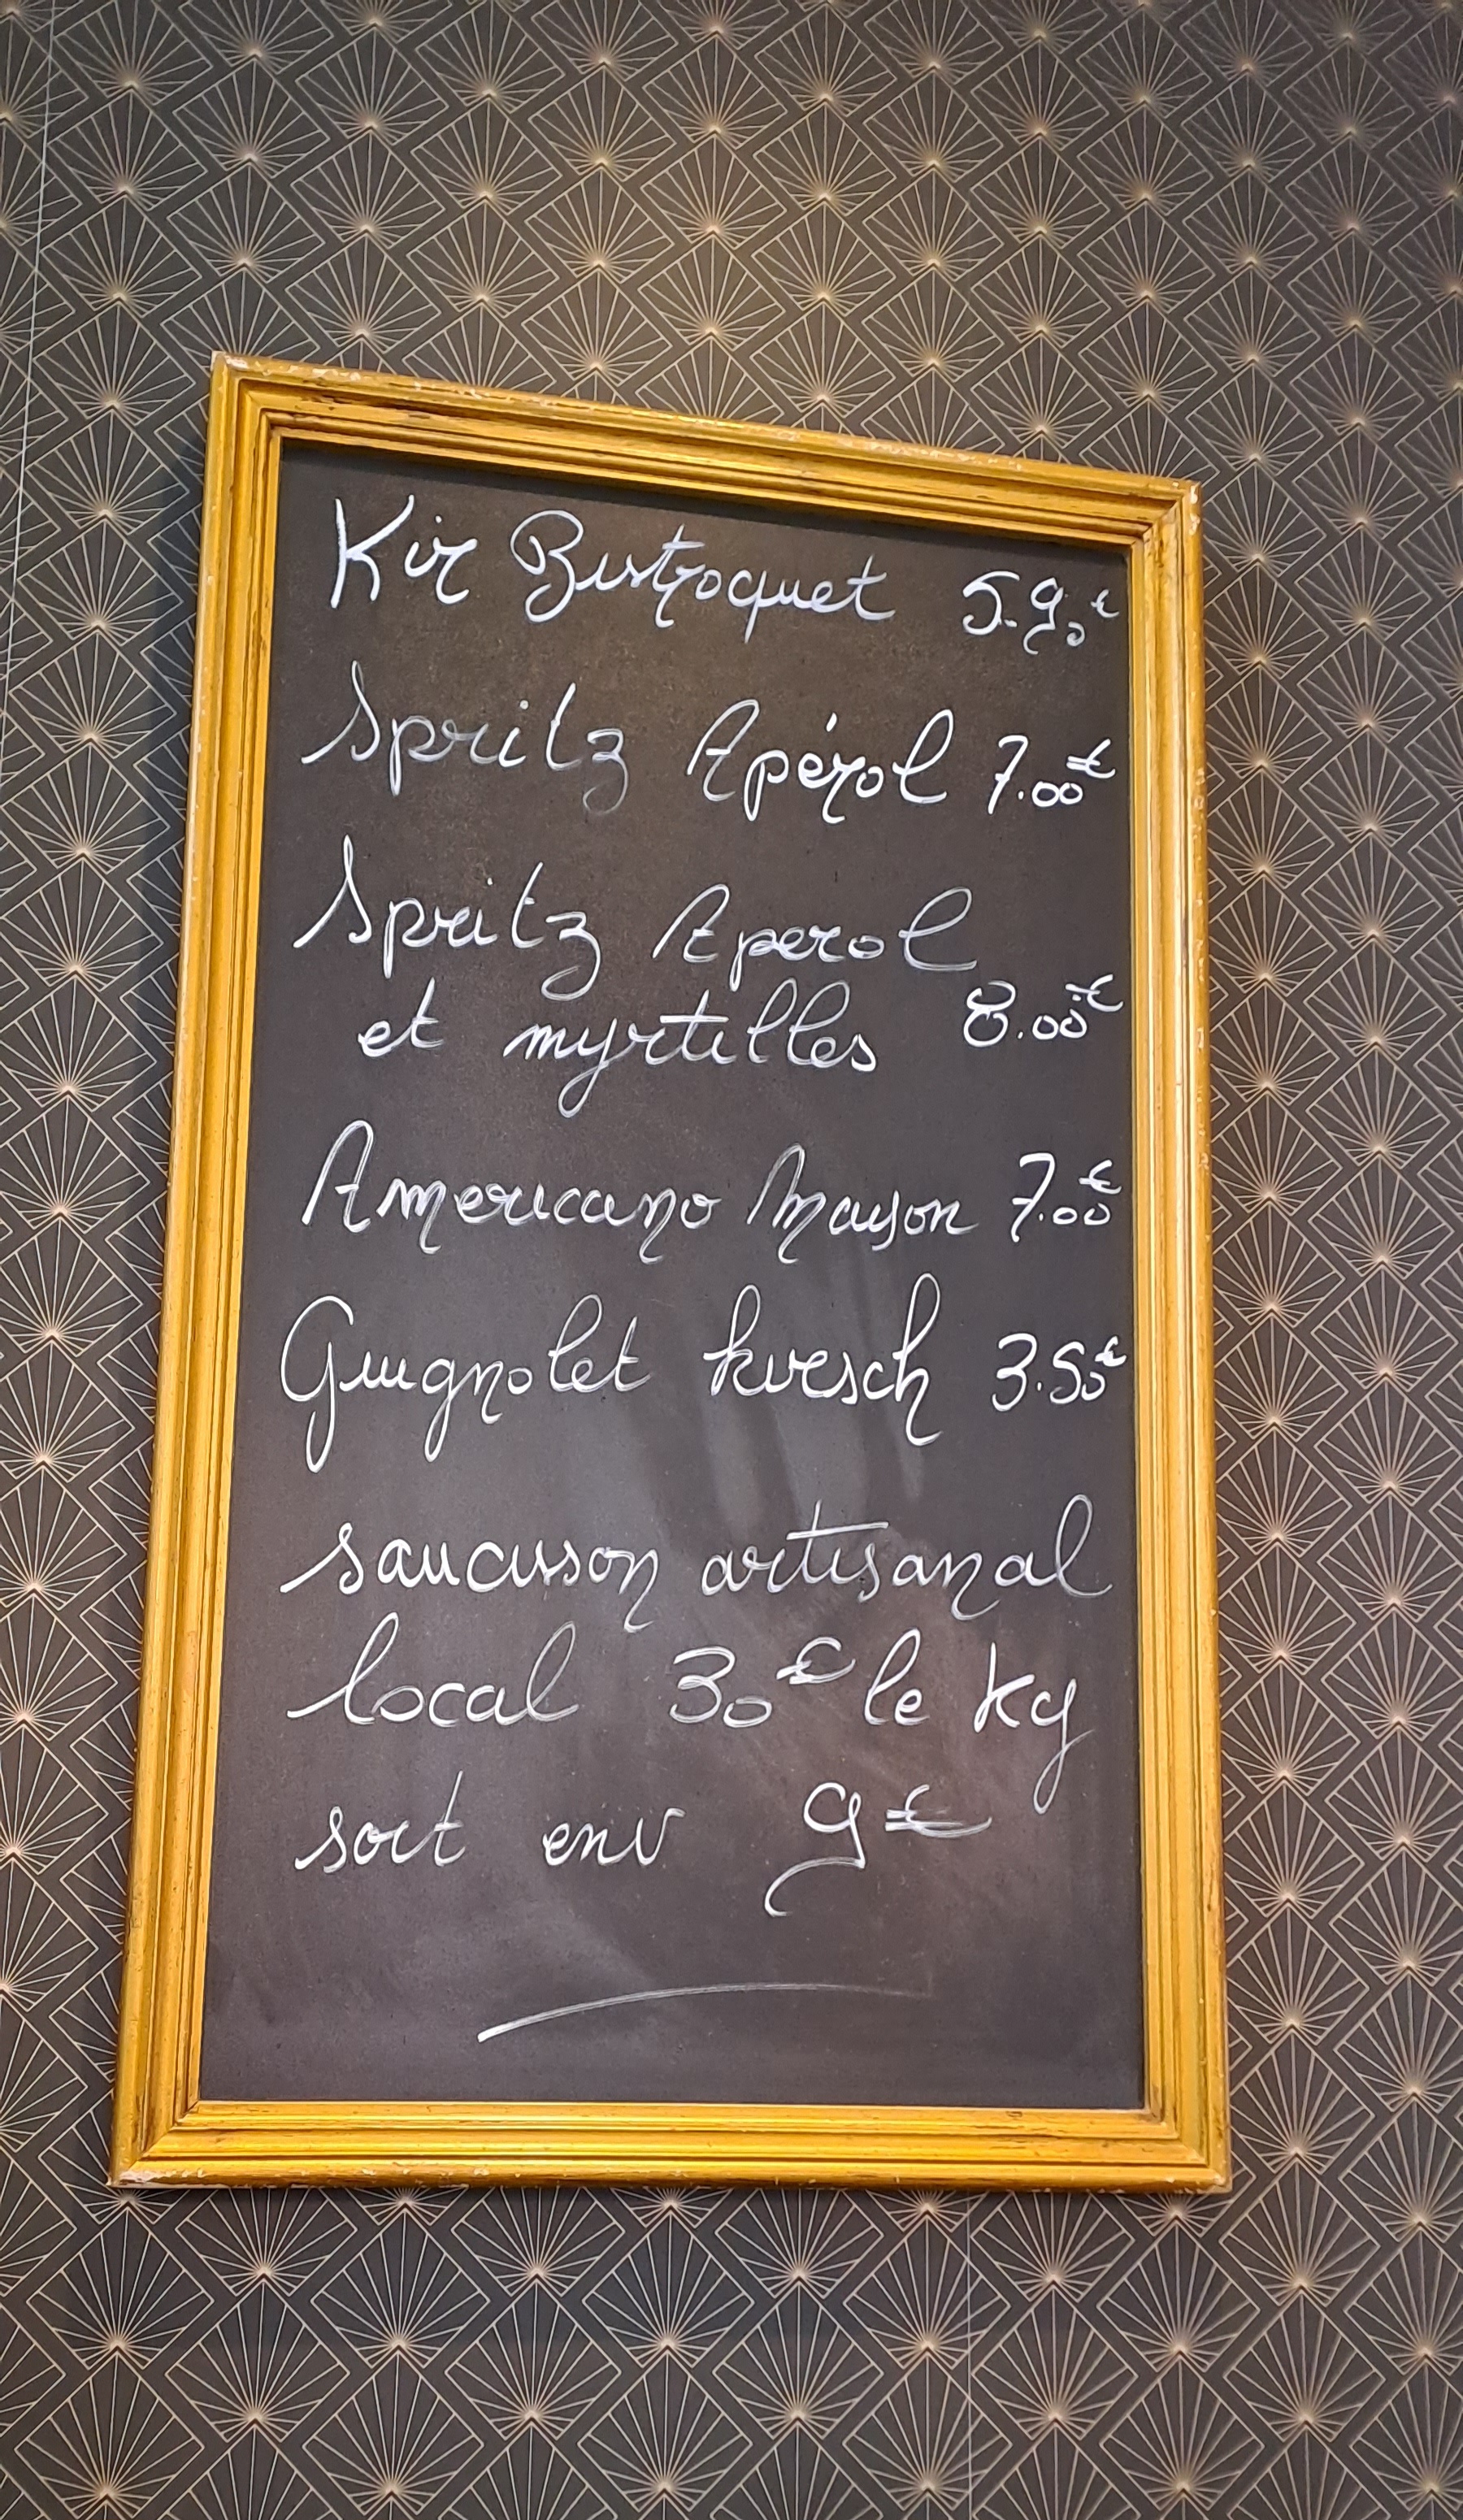 Kir Bistroquet 5.90€
Spritz Apérol 7.00€
Spritz Aperol
et myrtilles 8.00€
Americano Maison 7.00€
Guignolet kirsch 3.50€
saucisson artisanal
local 30€ le kg
soit env 9€